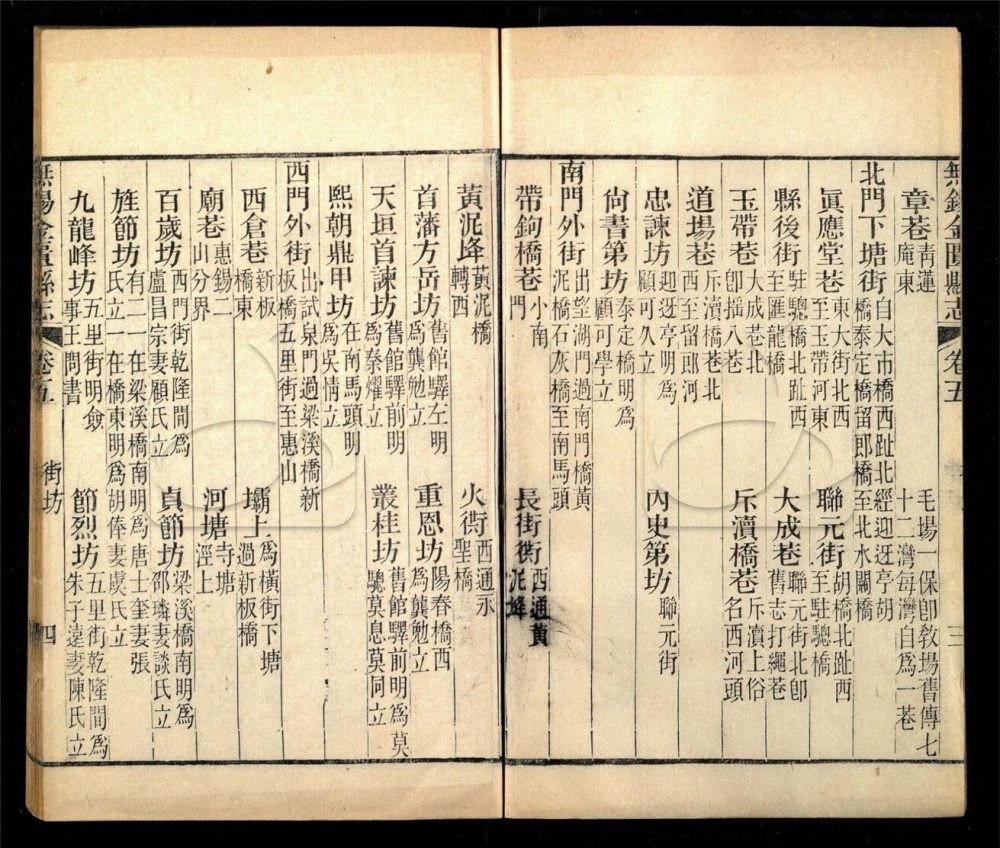 無錫金匱縣志 卷五 三
章巷青蓮菴東 毛場一保卽敎場舊傳七十二灣每灣自爲一巷
北門下塘街自大市橋西趾北經迎迓亭胡橋泰定橋留郎橋至北水關橋
眞應堂巷東大街北西至玉帶河東 聯元街胡橋北趾西至駐驄橋
縣後街駐驄橋北趾西至匯龍橋 大成巷聯元街北卽舊志打繩巷
玉帶巷大成巷北卽搖八巷 斥瀆橋巷斥瀆上俗名西河頭
道場巷斥瀆橋巷北西至留郎河
忠諫坊迎迓亭明爲顧可久立 內史第坊聯元街
尙書第坊泰定橋明爲顧可學立
南門外街出望湖門過南門橋黃泥橋石灰橋至南馬頭
帶鉤橋巷小南門 長街衖西通黃泥埄
黃泥埄黃泥橋轉西 火衖西通永聖橋
首藩方岳坊舊館驛左明爲龔勉立 重恩坊陽春橋西爲龔勉立
天垣首諫坊舊館驛前明爲秦燿立 叢桂坊舊館驛前明爲莫驄莫息莫同立
熙朝鼎甲坊在南馬頭明爲吳情立
西門外街出試泉門過梁溪橋新板橋五里街至惠山
西倉巷新板橋東 壩上爲橫街下塘過新板橋
廟巷惠錫二山分界 河塘寺塘涇上
百歲坊西門街乾隆間爲盧昌宗妻顧氏立 貞節坊梁溪橋南明爲邵璘妻談氏立
旌節坊有二一在梁溪橋南明爲唐士奎妻張氏立一在橋東明爲胡俸妻虞氏立
九龍峰坊五里街明僉事王問書 節烈坊五里街乾隆間爲朱子遠妻陳氏立
無錫金匱縣志 卷五 街坊 四